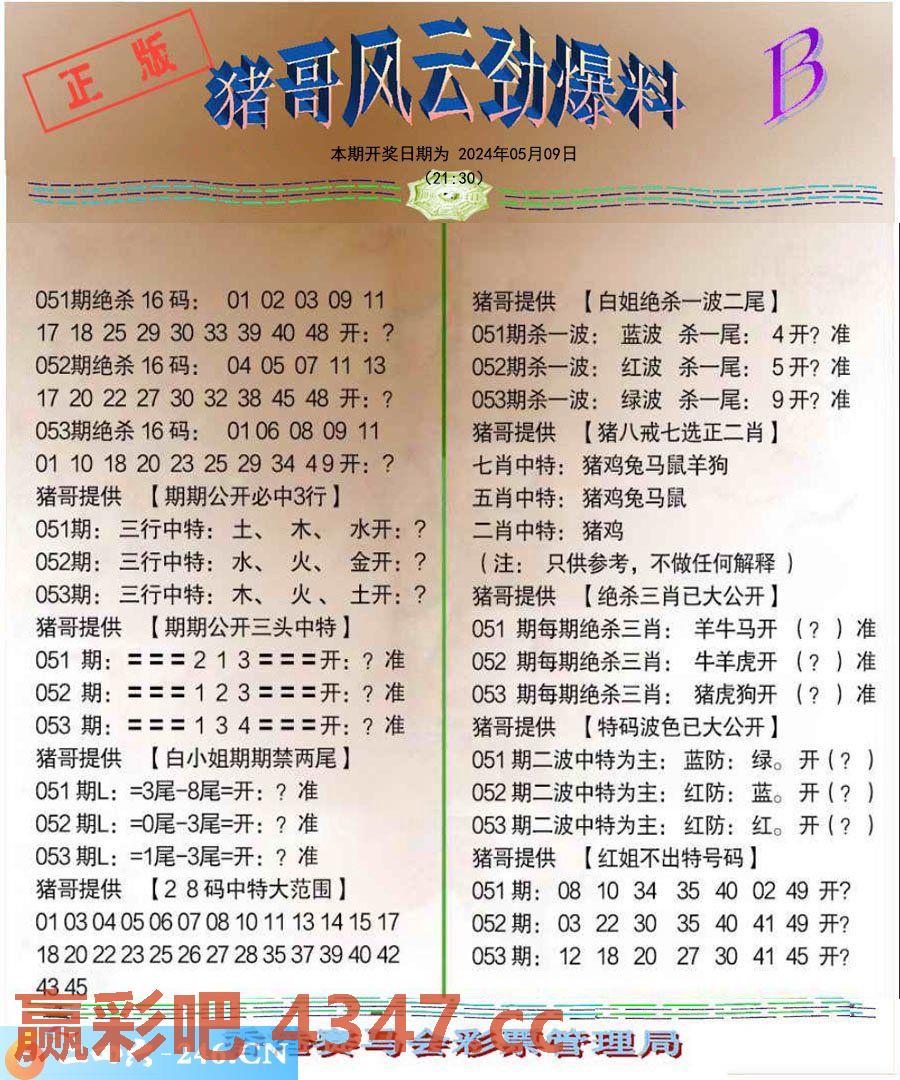 正版
猪哥风云劲爆料
B
本期开奖日期为 2024年05月09日
(21:30)
051期绝杀16码： 01 02 03 09 11
17 18 25 29 30 33 39 40 48 开：?
052期绝杀16码： 04 05 07 11 13
17 20 22 27 30 32 38 45 48 开：?
053期绝杀16码： 01 06 08 09 11
01 10 18 20 23 25 29 34 49开：?
猪哥提供 【期期公开必中3行】
051期：三行中特：土、 木、 水开：?
052期：三行中特：水、 火、 金开：?
053期：三行中特：木、 火、 土开：?
猪哥提供 【期期公开三头中特】
051 期：===213===开：? 准
052 期：===123===开：? 准
053 期：===134===开：? 准
猪哥提供 【白小姐期期禁两尾】
051期L：=3尾-8尾=开：? 准
052期L：=0尾-3尾=开：? 准
053期L：=1尾-3尾=开：? 准
猪哥提供 【28码中特大范围】
01 03 04 05 06 07 08 10 11 13 14 15 17
18 20 22 23 25 26 27 28 35 37 39 40 42
43 45
猪哥提供 【白姐绝杀一波二尾】
051期杀一波： 蓝波 杀一尾： 4开? 准
052期杀一波： 红波 杀一尾： 5开? 准
053期杀一波： 绿波 杀一尾： 9开? 准
猪哥提供 【猪八戒七选正二肖】
七肖中特：猪鸡兔马鼠羊狗
五肖中特：猪鸡兔马鼠
二肖中特：猪鸡
（注： 只供参考，不做任何解释）
猪哥提供 【绝杀三肖已大公开】
051 期每期绝杀三肖： 羊牛马开 （?）准
052 期每期绝杀三肖： 牛羊虎开 （?）准
053 期每期绝杀三肖： 猪虎狗开 （?）准
猪哥提供 【特码波色已大公开】
051期二波中特为主：蓝防：绿。开(?)
052期二波中特为主：红防：蓝。开(?)
053期二波中特为主：红防：红。开(?)
猪哥提供 【红姐不出特号码】
051期： 08 10 34 35 40 02 49 开?
052期： 03 22 30 35 40 41 49 开?
053期： 12 18 20 27 30 41 45 开?
赢彩吧 4347.cc
赛马会彩票管理局